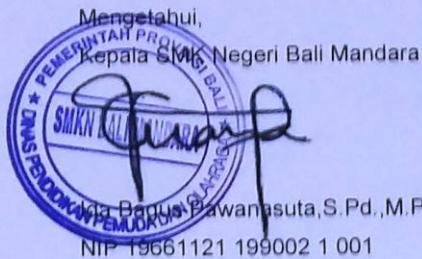 Mengetahui,
Kepala SMK Negeri Bali Mandara
PEMERINTAH PROVINSI BALI
SMKN BALI MANDARA
DINAS PENDIDIKAN PEMUDA DAN OLAHRAGA
Ida Bagus Pawanasuta,S.Pd.,M.P
NIP 19661121 199002 1 001